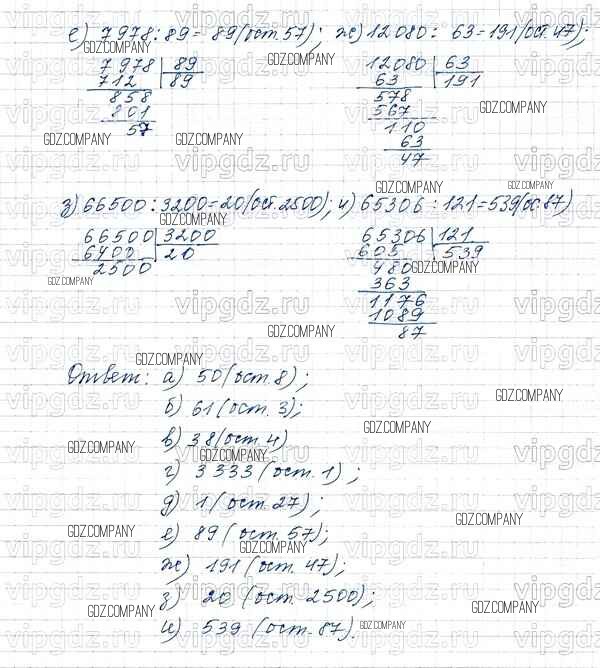 е) 7978 : 89 = 89 (ост. 57); ж) 12080 : 63 = 191 (ост. 47);
7978 | 89
712 | 89
858
801
57
12080 | 63
63 | 191
578
567
110
63
47
з) 66500 : 3200 = 20 (ост. 2500); и) 65306 : 121 = 539 (ос. 87)
66500 | 3200
6400 | 20
2500
65306 | 121
605 | 539
480
363
1176
1089
87
Ответ: а) 50 (ост. 8);
б) 61 (ост. 3);
в) 38 (ост. 4)
г) 3333 (ост. 1);
д) 1 (ост. 27);
е) 89 (ост. 57);
ж) 191 (ост. 47);
з) 20 (ост. 2500);
и) 539 (ост. 87).
GDZ.COMPANY
vipgdz.ru